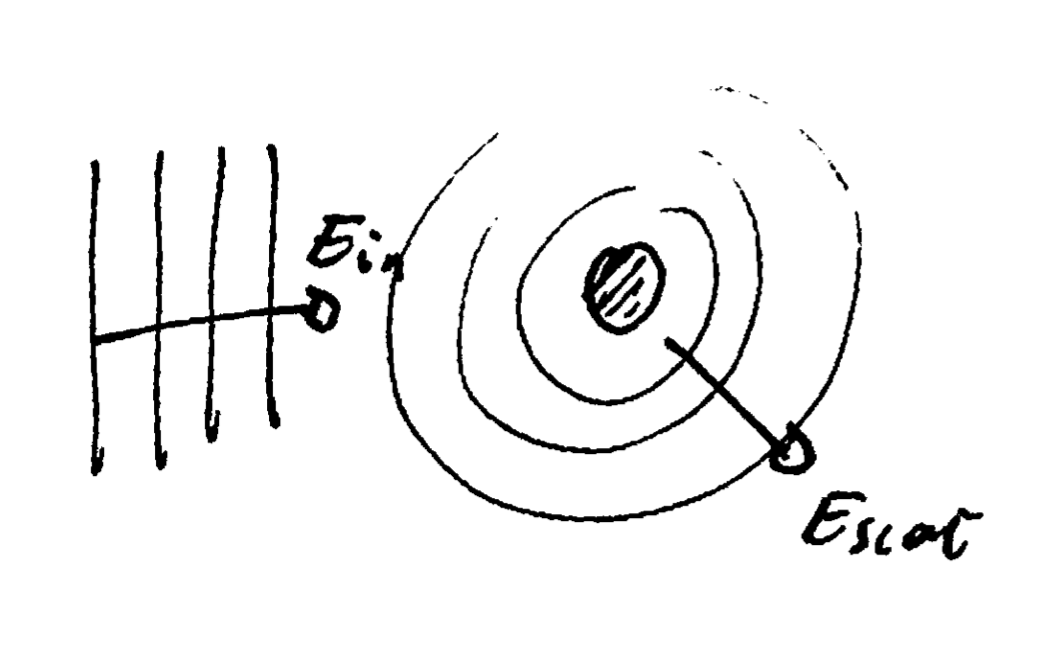 Ein
Escat